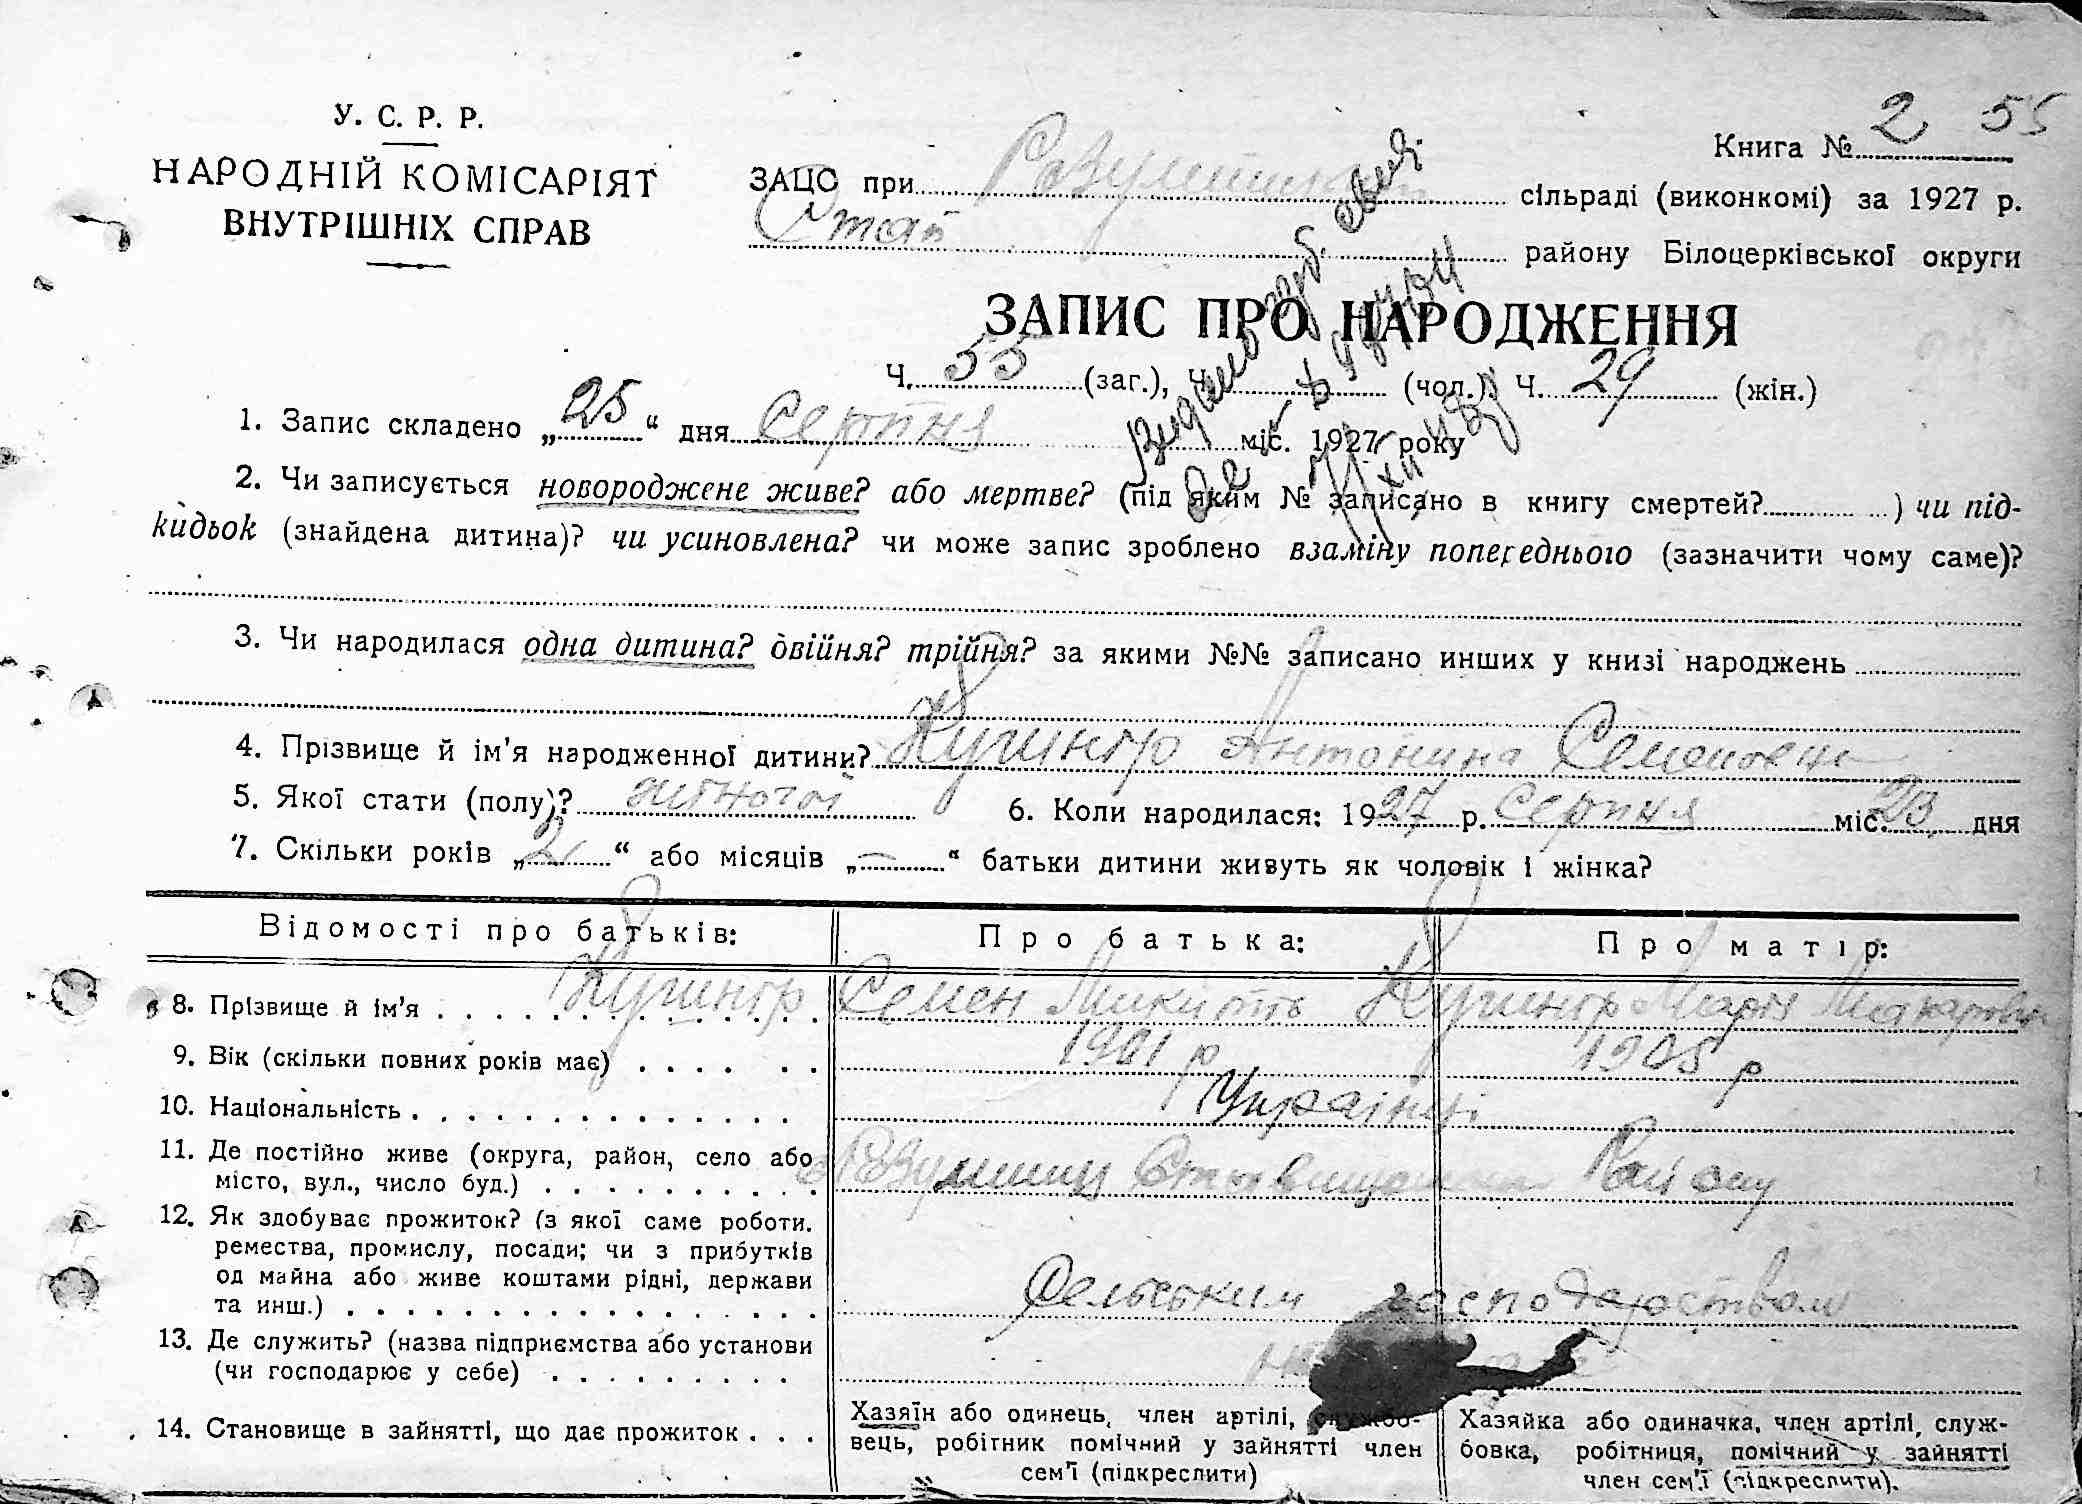 У. С. Р. Р.
НАРОДНІЙ КОМІСАРІЯТ
ВНУТРІШНІХ СПРАВ
Книга № 2 55
ЗАЦО при сільраді (виконкомі) за 1927 р.
Став району Білоцерківської округи
ЗАПИС ПРО НАРОДЖЕННЯ
Ч. 55 (заг.), Ч. (чол.) Ч. 29 (жін.)
1. Запис складено „25“ дня Серпня міс. 1927 року
2. Чи записується новороджене живе? або мертве? (під яким № записано в книгу смертей? ) чи під-
кидьок (знайдена дитина)? чи усиновлена? чи може запис зроблено взаміну попереднього (зазначити чому саме)?
3. Чи народилася одна дитина? двійня? трійня? за якими №№ записано инших у книзі народжень
4. Прізвище й ім’я народженної дитини? Антонина Семеновна
5. Якої стати (полу)? жіночої 6. Коли народилася: 1927 р. серпня міс. 23 дня
7. Скільки років „2“ або місяців „—“ батьки дитини живуть як чоловік і жінка?
Відомості про батьків: Про батька: Про матір:
8. Прізвище й ім’я Семен Микит Марія Макаровн
9. Вік (скільки повних років має) 1901 р 1905 р
10. Національність Українці
11. Де постійно живе (округа, район, село або
місто, вул., число буд.) Району
12. Як здобуває прожиток? (з якої саме роботи.
ремества, промислу, посади; чи з прибутків
од майна або живе коштами рідні, держави
та инш.) Сельським господарством
13. Де служить? (назва підприємства або установи
(чи господарює у себе)
14. Становище в зайнятті, що дає прожиток
Хазяїн або одинець, член артілі, службо-
вець, робітник помічний у зайнятті член
сем’ї (підкреслити)
Хазяйка або одиначка, член артілі, служ-
бовка, робітниця, помічний у зайнятті
член сем’ї (підкреслити).